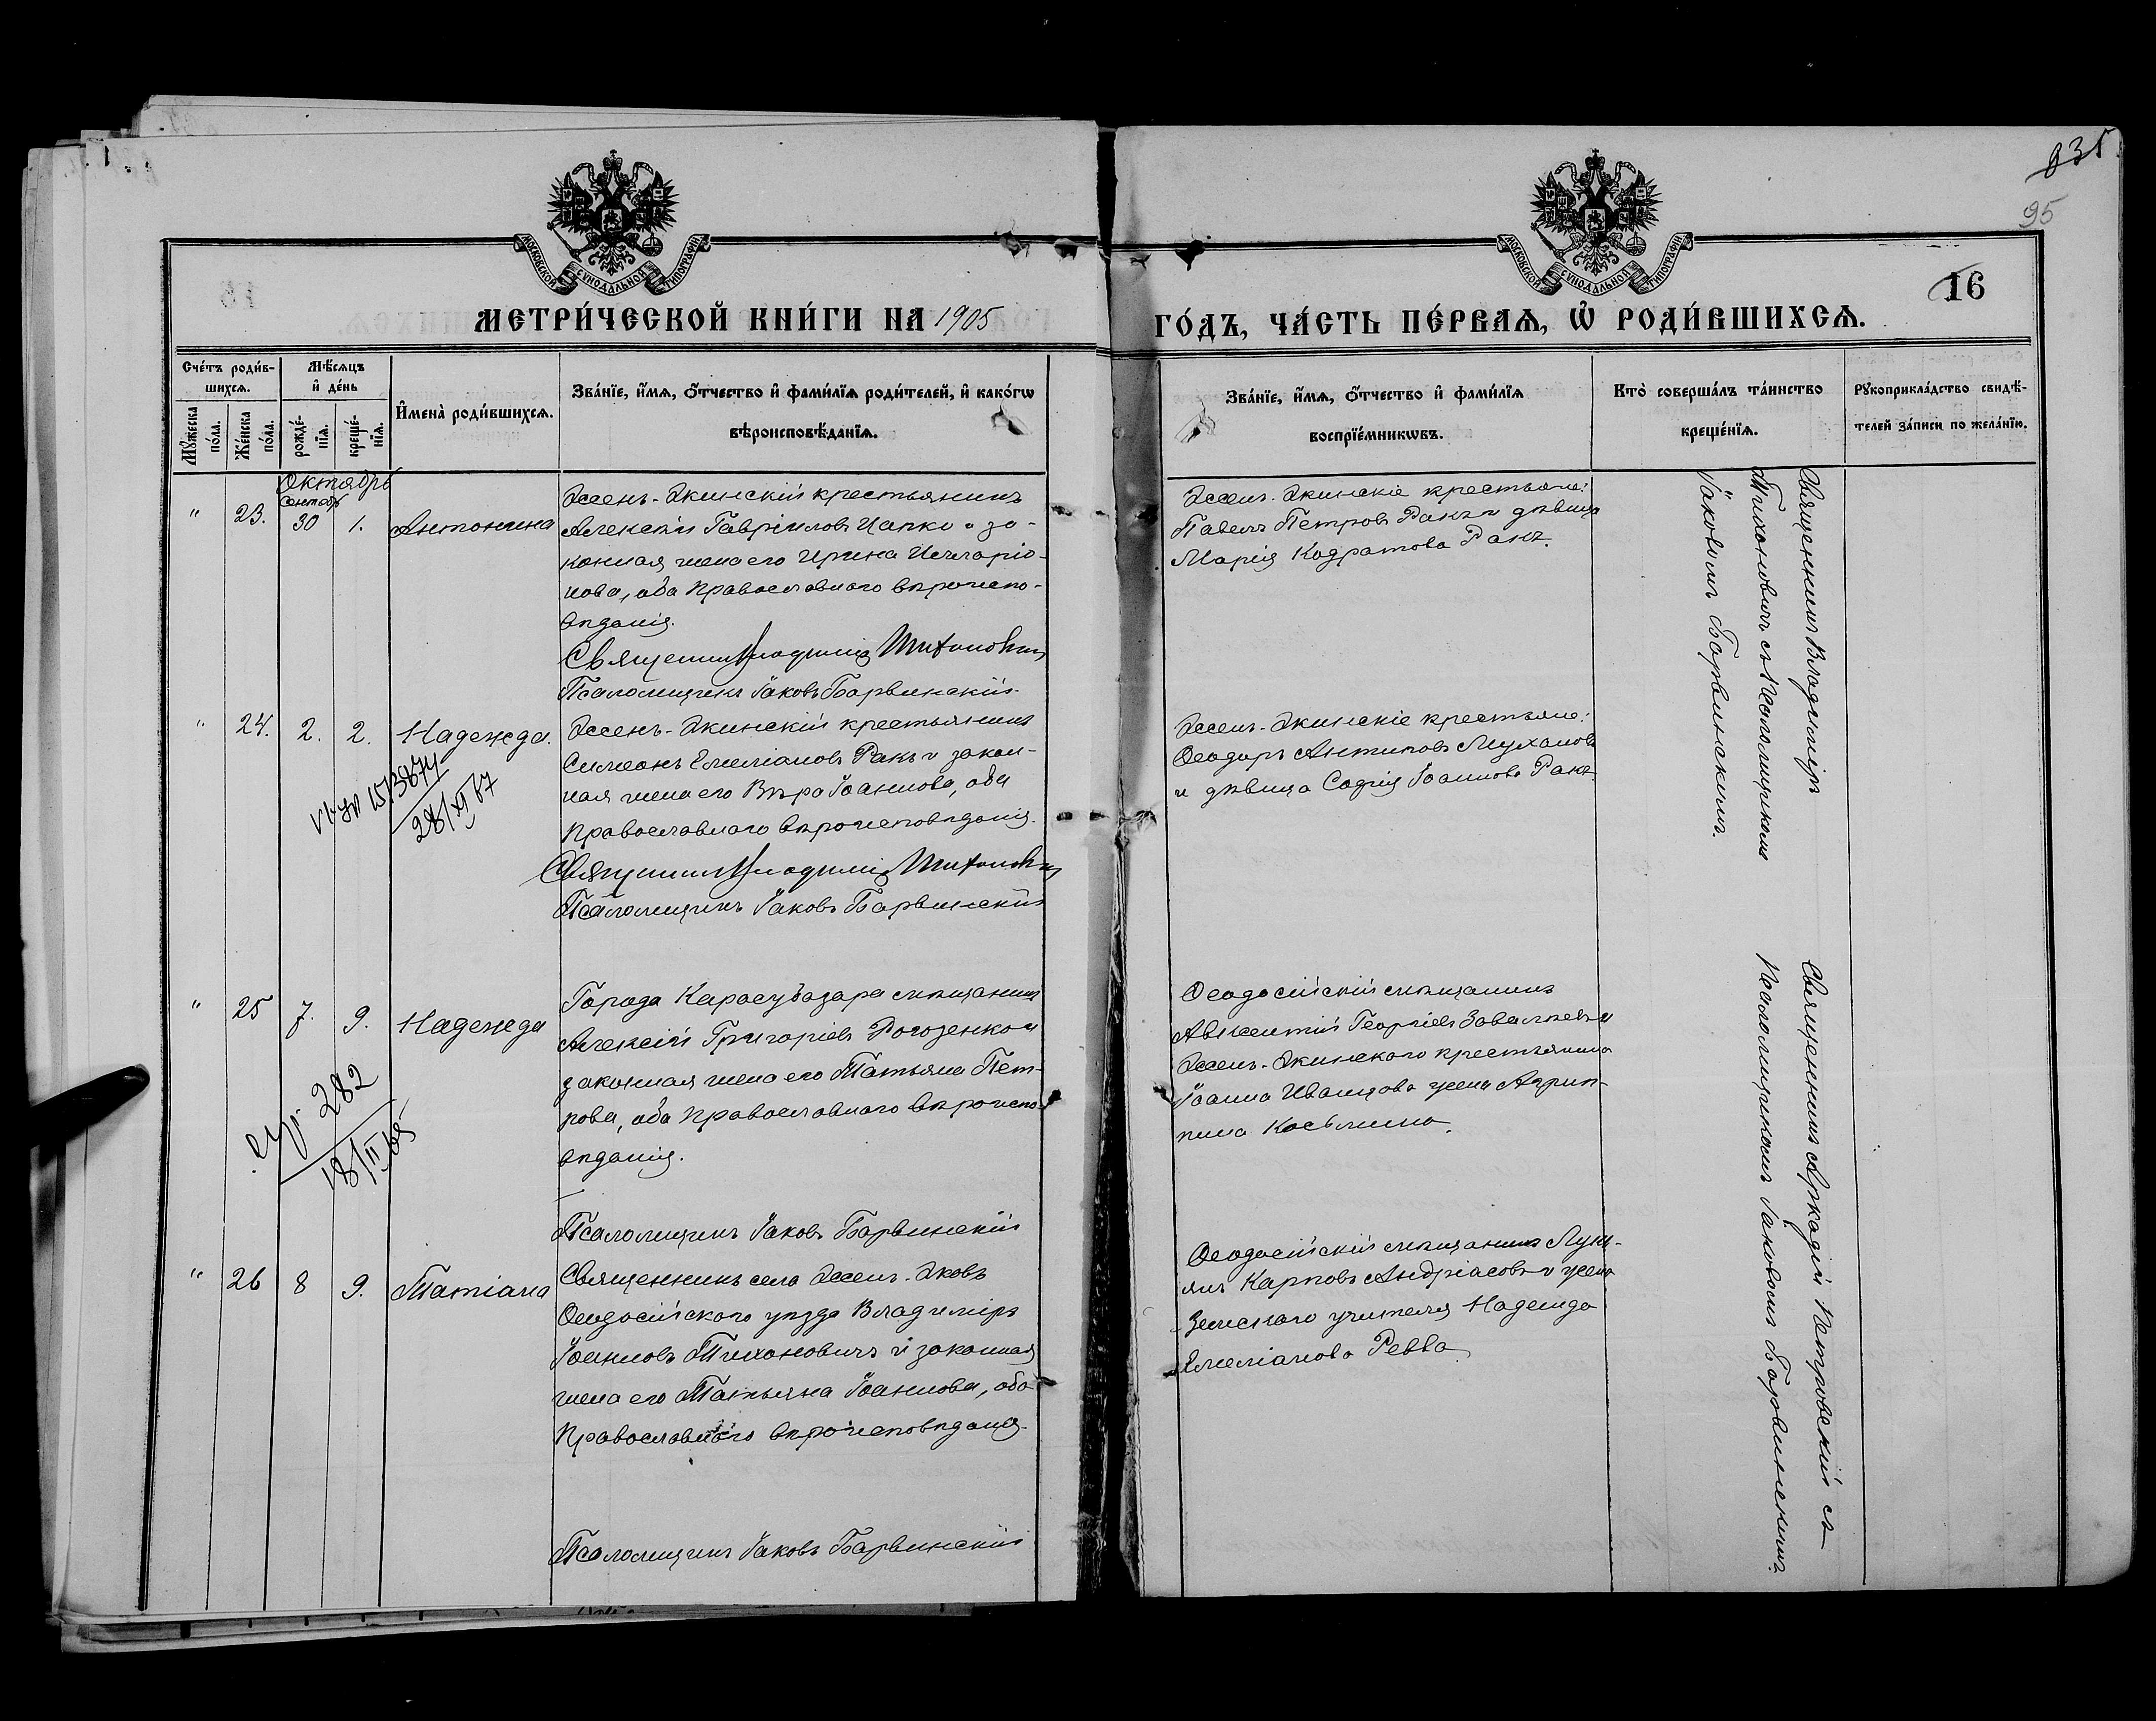 635
95
МОСКОВСКОЙ СѴНОДАЛЬНОЙ ТИПОГРАФІИ
МОСКОВСКОЙ СѴНОДАЛЬНОЙ ТИПОГРАФІИ
16
МЕТРИ́ЧЕСКОЙ КНИ́ГИ НА 1905
ГО́ДЪ, ЧА́СТЬ ПЕ́РВАѦ, Ѡ҆ РОДИ́ВШИХСѦ.
Сче́тъ роди́в-
шихсѧ.
Мꙋ́жеска по́ла.
Же́нска по́ла.
Мѣ́сѧцъ
и҆ де́нь
рожде́-
нїѧ.
креще́-
нїѧ.
И҆мена̀ роди́вшихсѧ.
Зва́нїе, и҆́мѧ, ѻ҆́тчество и҆ фами́лїѧ роди́телей, и҆ како́гѡ
вѣроисповѣ́данїѧ.
Зва́нїе, и҆́мѧ, ѻ҆́тчество и҆ фами́лїѧ
воспрїе́мникѡвъ.
Кто̀ соверша́лъ та́инство
креще́нїѧ.
Рꙋкоприкла́дство свидѣ́-
телей за́писи по жела́нїю.
Октябрь
Сентябр
" 23. 30 1. Антонина
Эссенъ-Экинскій крестьянинъ
Алексій Гавріиловъ Цапко и за-
конная жена его Ирина Илларіо-
нова, оба Православнаго вѣроиспо-
вѣданія.
Священник Владимір Тихонович
Псаломщикъ Іаковъ Барвинскій
Эссенъ-Экинскіе крестьяне:
Павелъ Петровъ Ракъ и дѣвица
Марія Кодратова Ракъ.
Священникъ Владиміръ
Тихоновичъ съ Псаломщикомъ
Іаковомъ Барвинскимъ.
" 24. 2. 2. Надежда.
28/XI 67
Эссенъ-Экинскій крестьянинъ
Симеонъ Емеліановъ Ракъ и закон-
ная жена его Вѣра Іоаннова, оба
Православнаго вѣроисповѣданія.
Священник Владимір Тихонович
Псаломщикъ Іаковъ Барвинскій
Эссенъ-Экинскіе крестьяне:
Ѳеодоръ Антиповъ Мухановъ
и дѣвица Софія Іоаннова Ракъ
" 25 7. 9. Надежда
282
18/II 65
Города Карасубазара мѣщанинъ
Алексій Григоріевъ Рогозенко и
законная жена его Татьяна Пет-
рова, оба Православнаго вѣроиспо-
вѣданія.
Псаломщикъ Іаковъ Барвинскій
Ѳеодосійскій мѣщанинъ
Авксентій Георгіевъ Завалѣевъ и
Эссенъ-Экинскаго крестьянина
Іоанна Иванцова жена Агрип-
пина Косьмина.
Священникъ Аркадій Петровскій съ
Псаломщикомъ Іаковомъ Барвинскимъ.
" 26 8 9. Татіана
Священникъ села Эссенъ-Эковъ
Ѳеодосійскаго уѣзда Владиміръ
Іоанновъ Тихоновичъ и законная
жена его Татьяна Іоаннова, оба
Православнаго вѣроисповѣданія.
Псаломщикъ Іаковъ Барвинскій
Ѳеодосійскій мѣщанинъ Луки-
янъ Карповъ Андріасовъ и жена
Земскаго учителя Надежда
Емеліанова Ревва.